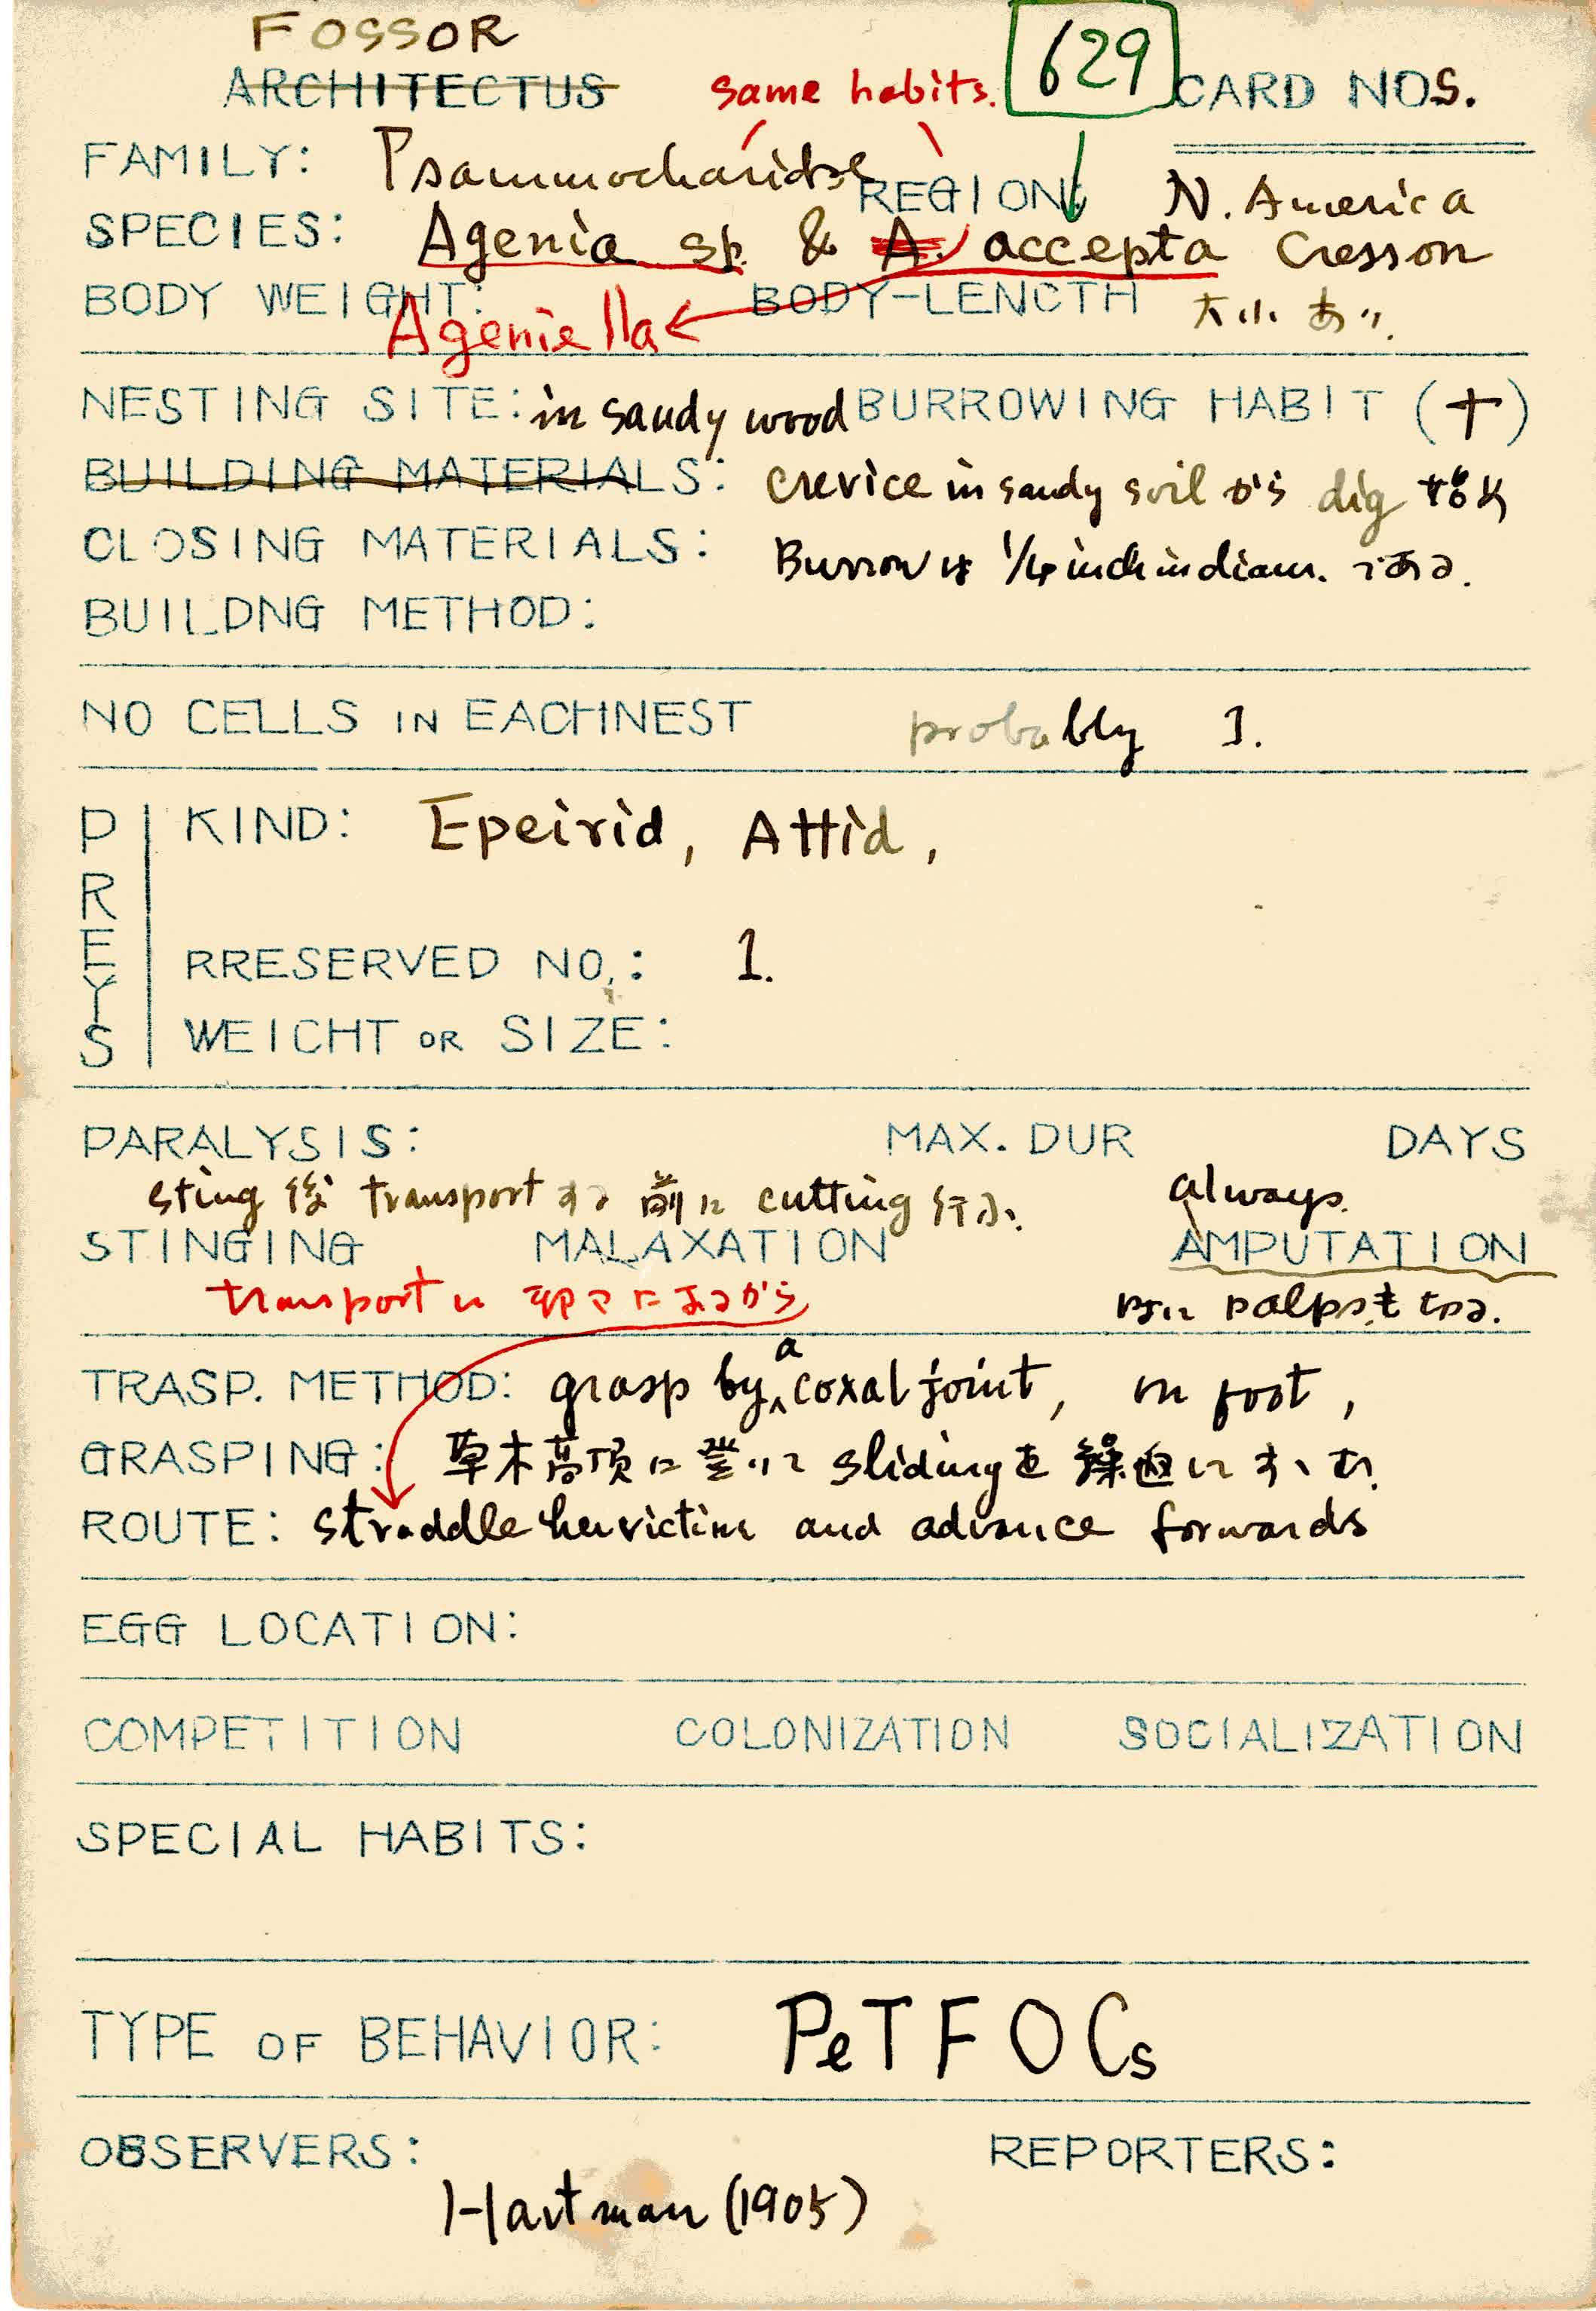 FOSSOR
ARCHITECTUS
same habits.
629
CARD NOS.
FAMILY: Psammocharidae
REGION: N. America
SPECIES: Agenia sp. & A. accepta Cresson
BODY WEIGHT: BODY-LENGTH 大小あり.
Ageniella
NESTING SITE: in sandy wood BURROWING HABIT (+)
BUILDING MATERIALS: crevice in sandy soil から dig
CLOSING MATERIALS: Burrow は 1/4 inch in diam. である.
BUILDNG METHOD:
NO CELLS IN EACHNEST probably 1.
PREYS
KIND: Epeirid, Attid,
RRESERVED NO.: 1.
WEICHT OR SIZE:
PARALYSIS: MAX. DUR DAYS
sting 後 transport する前に cutting 行ふ. always.
STINGING MALAXATION AMPUTATION
transport
時に palpsも切る.
TRASP. METHOD: grasp by a coxal joint, on foot,
GRASPING: 草木高頂に登って sliding を繰返して
ROUTE: straddle her victim and advance forwards
EGG LOCATION:
COMPETITION COLONIZATION SOCIALIZATION
SPECIAL HABITS:
TYPE OF BEHAVIOR: PeTFOCs
OBSERVERS: REPORTERS:
Hartman (1905)